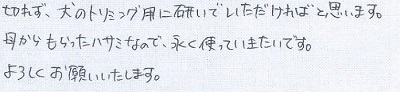 切れず、犬のトリミング用に研いでいただければと思います。
母からもらったハサミなので、永く使っていきたいです。
よろしくお願いいたします。